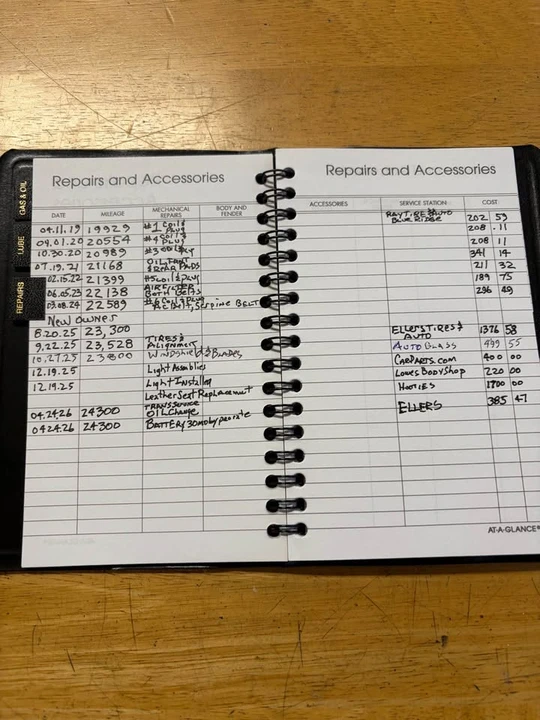 Repairs and Accessories
DATE MILEAGE MECHANICAL REPAIRS BODY AND FENDER
04.11.19 19929 #1 Coil & Plug
09.01.20 20554 #4 Coil & Plug
10.30.20 20989 #3 Coil
07.19.21 21168 OIL, Front & Rear Pads
02.15.22 21399 #5 Coil & Plug
06.05.23 22138 AIR FILTER Both Belts
03.08.24 22589 #6 Coil & Plug Serpine Belt
New Owner
8.20.25 23,300
9.22.25 23,528 TIRES & Alignment
10.27.25 23800 Windshield & Blades
12.19.25 Light Assemblies
12.19.25 Light Installed
Leather Seat Replacement
Trans Service
04.24.26 24300 OIL Change
0424.26 24300 BATTERY
GAS & OIL
LUBE
REPAIRS
Repairs and Accessories
ACCESSORIES SERVICE STATION COST
Blue Ridge 202 59
208 .11
208 11
341 14
211 32
189 75
236 49
Ellers Tires & Auto 1376 58
Auto Glass 499 55
CarParts.com 400 00
Lowes Body Shop 220 00
Hooties 1700 00
ELLERS 385 47
AT-A-GLANCE®